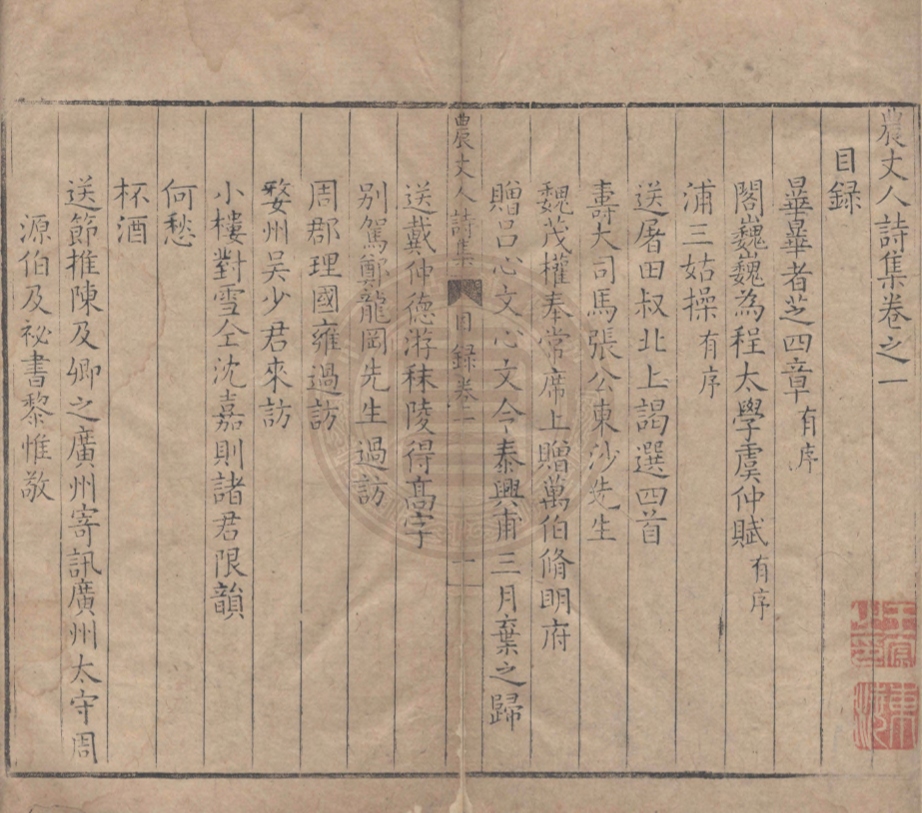 農丈人詩集卷之一
目録
畢畢者芝四章 有序
閣巍巍為程太學虞仲賦 有序
浦三姑操 有序
送屠田叔北上謁選四首
壽大司馬張公東沙先生
魏茂權奉常席上贈萬伯脩明府
贈呂心文心文令泰興甫三月棄之歸
農丈人詩集 目録卷一 一
送戴仲德游秣陵得高字
別駕鄭龍岡先生過訪
周郡理國雍過訪
婺州吳少君來訪
小樓對雪仝沈嘉則諸君限韻
何愁
杯酒
送節推陳及卿之廣州寄訊廣州太守周
源伯及祕書黎惟敬